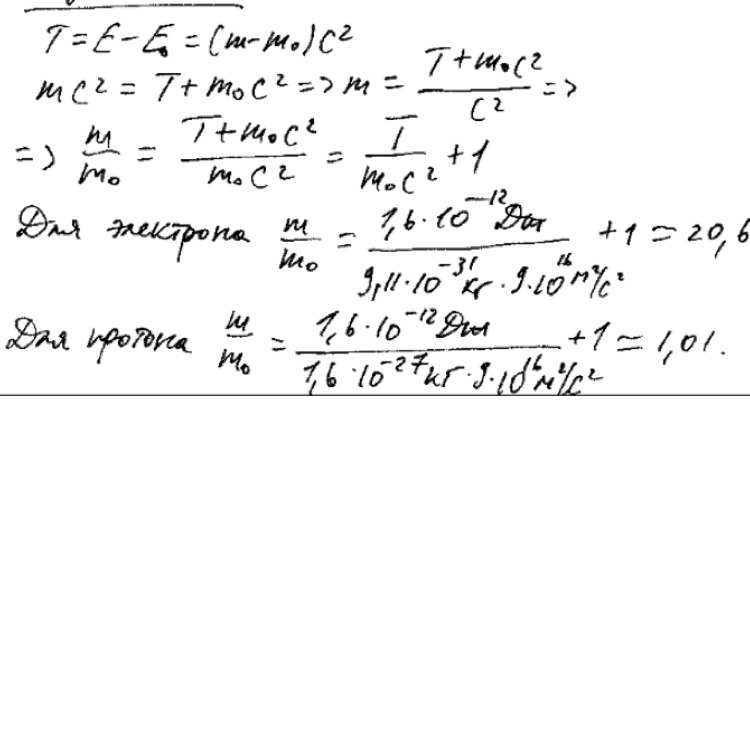 T = E - E₀ = (m - m₀)c²
mc² = T + m₀c² => m = (T + m₀c²)/c² =>
=> m/m₀ = (T + m₀c²)/(m₀c²) = T/(m₀c²) + 1
Для электрона m/m₀ = (1,6·10⁻¹² Дж)/(9,11·10⁻³¹ кг · 9·10¹⁶ м²/с²) + 1 = 20,6
Для протона m/m₀ = (1,6·10⁻¹² Дж)/(1,6·10⁻²⁷ кг · 9·10¹⁶ м²/с²) + 1 = 1,01.